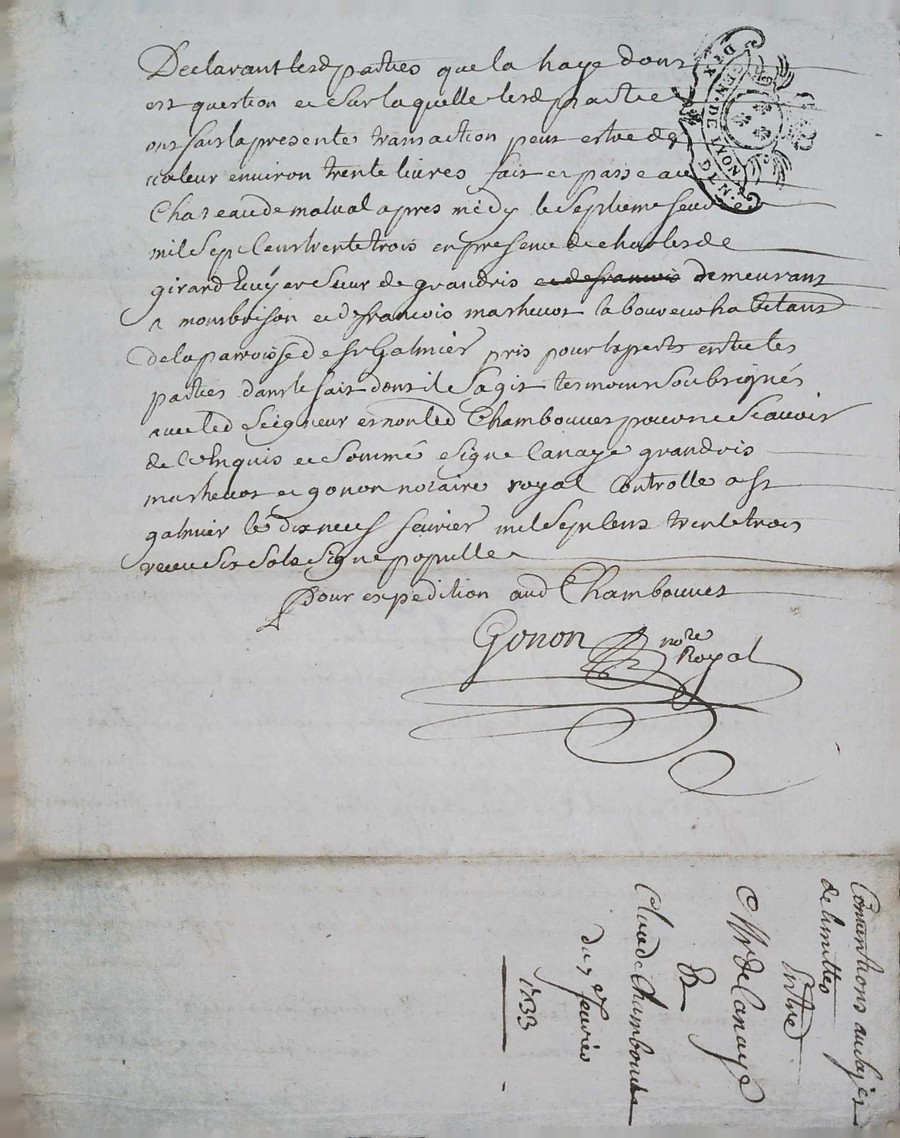 Declarant lesd parties que la haye dont
est question et sur laquelle lesd partie
ont fait la presente transaction peut estre de
valeur environ trente livres fait et passé au
Chateau de malval apres midy le septieme feuv
mil sept cent trente trois en presence de charles de
girard Ecuyer sieur de grandris et de francois demeurant
a monbrison et de francois marheuot laboureur habitant
de la parroisse de st Galmier pris pour experts entre les
parties dans le fait dont il sagit tesmoins soubsignés
avec led seigneur et non led Chambouvet pour ne scavoir
de Enquis et sommé signé Lanaye grandris
marheuot et gonon notaire royal Controllé a st
galmier le dix neuf feurier mil sept cent trente trois
receu six sols signé populle
Pour expedition aud Chambouvet
Gonon nore
Royal
GEN. DE
DIX
de limittes
Entre
Mr de Lanaye
&
Claude Chambouvet
du 7e feurier
1733